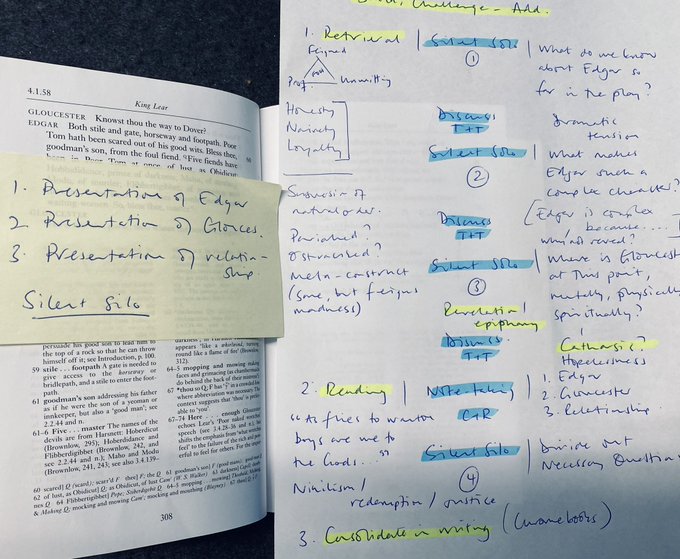 4.1.58
King Lear
GLOUCESTER Knowst thou the way to Dover?
EDGAR Both stile and gate, horseway and footpath. Poor
Tom hath been scared out of his good wits. Bless thee,
goodman's son, from the foul fiend. Five fiends have 60
been in Poor Tom at once, of lust, as Obidicut,
1. Presentation of Edgar
2. Presentation of Glouces.
3. Presentation of relation-
ship.
Silent Silo
persuade his good son to lead him to
the top of a rock so that he can throw
himself off it; see Introduction, p. 100.
59 stile . . . footpath A gate is needed to
give access to the horseway or
bridlepath, and a stile to enter the foot-
path.
61 goodman's son addressing his father
as if he were the son of a yeoman or
innkeeper, but also a 'good man'; see
2.2.44 and n.
61–6 Five . . . master The names of the
devils are from Harsnett: Hoberdicut
(Brownlow, 295); Hoberdidance and
Flibberdigibbet (Brownlow, 242, and
see 2.2.44 and n.); Mahu and Modu
(Brownlow, 241, 243; see also 3.4.139–
appears 'like a whirlwind, turning
round like a flame of fire' (Brownlow,
312).
64–5 mopping and mowing making
faces and grimacing (as charmers
do behind the back of their mistress)
67 *thou so Q; F has
where abbreviation was necessary. The
context suggests that 'thou' is prefer-
able to 'you'
67–74 Here . . . enough Gloucester
echoes Lear's 'Poor naked wretches'
speech (see 3.4.28–36 and n.), but
shifts the emphasis from 'what wretches
feel' to the failure of the rich and pow-
erful to feel for others. For the
308
Challenge - Add.
1. Retrieval
Feigned
Prof. Unwitting
Honesty
Naivety
Loyalty
Subversion of
natural order.
Pariahed?
Ostracised?
Meta-construct
(Same, but feigns
madness)
Silent Solo
1
Discuss
T+T
Silent Solo
2
Discuss
T+T
Silent Solo
3
Revelation/
epiphany
Discuss
T+T
What do we know
about Edgar so
far in the play?
Dramatic
tension
What makes
Edgar such a
complex character?
[Edgar is complex
because....
Where is Gloucester
at this point,
mentally, physically,
spiritually?
Catharsis?
Hopelessness
2. Reading
"As flies to wanton
boys are we to
the Gods..."
Nihilism/
redemption/justice
Note-taking
C+R
Silent Silo
4
1. Edgar
2. Gloucester
3. Relationship
Divide out
Necessary Questions
3. Consolidate in writing (Chromebooks)